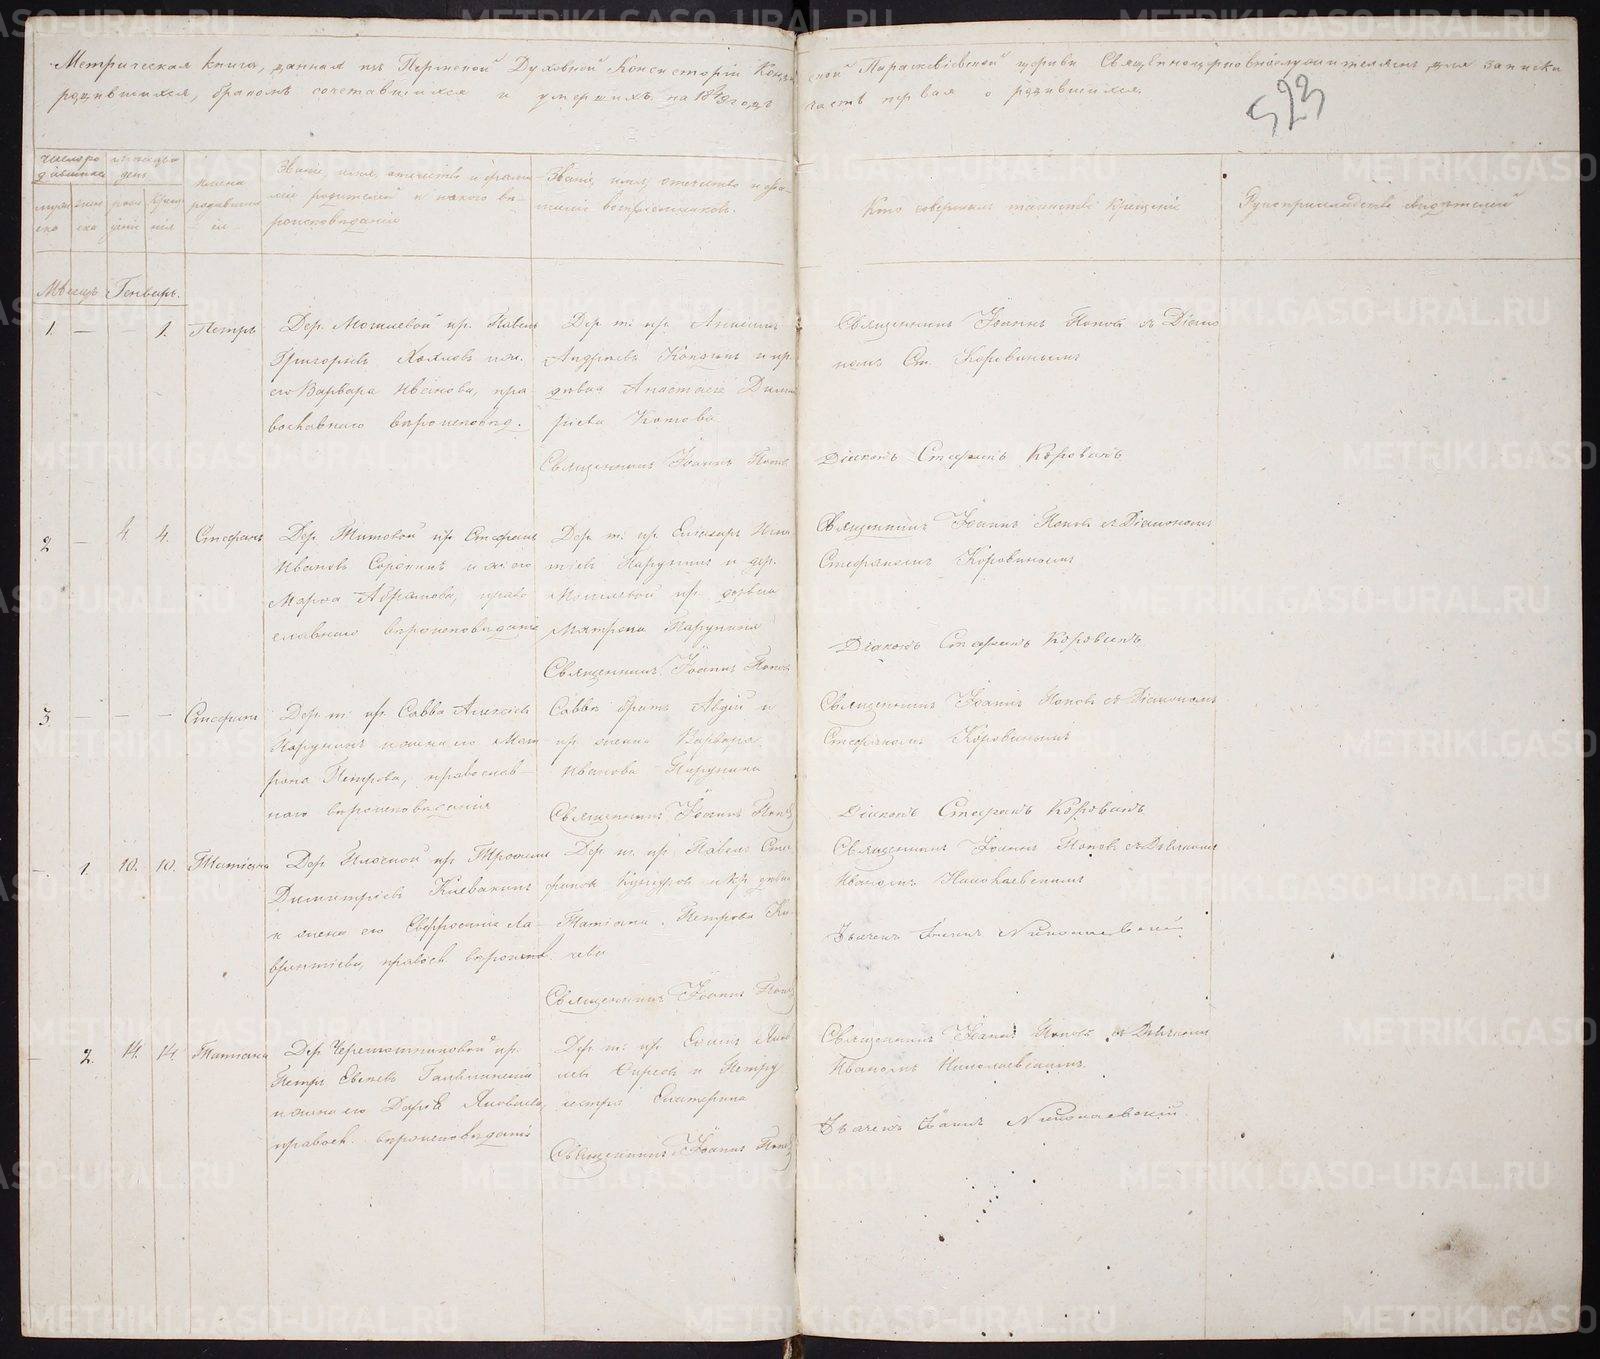 Метрическая книга, данная изъ Пермской Духовной Консисторіи
ской Параскевіевской церкви Священноцерковнослужителямъ для записки
родившихся, бракомъ сочетавшихся и умершихъ на годъ
часть первая о родившихся.
523
имена родившихся
Званіе, имя, отчество и фамиліи родителей и какого вѣроисповѣданія
Званіе, имя, отчество и фамиліи воспріемниковъ.
Кто совершалъ таинство крещенія
Рукоприкладство свидѣтелей
Мѣсяцъ Генварь.
1. — — 1. Петръ
Дер. Могилевой кр. Павелъ
Григорьевъ Хохловъ и ж.
его Варвара Иванова, пра-
вославнаго вѣроисповѣд.
Дер. т. кр.
Андреевъ и кр.
дѣвка Анастасія Дими
тріева Котова
Священникъ Іоаннъ Поповъ
Священникъ Іоаннъ Поповъ съ Діако
номъ Ст. Коровинымъ
Діаконъ Стефанъ Коровинъ
2. — 4. 4. Стефанъ
Дер. Титовой кр. Стефанъ
Ивановъ Сорокинъ и ж. его
Марѳа Абрамова, право
славнаго вѣроисповѣданія
Дер. т. кр. Елизаръ Игна
тіевъ Парунинъ и дер.
Могилевой кр. дѣвка
Матрена Парунина
Священникъ Іоаннъ Поповъ
Священникъ Іоаннъ Поповъ съ Діакономъ
Стефаномъ Коровинымъ
Діаконъ Стефанъ Коровинъ
3. — — — Стефанъ
Дер. т. кр. Савва Алексѣевъ
Парунинъ и жена его Мат
рона Петрова, православ-
наго вѣроисповѣданія
Саввы братъ Авдій и
кр. жена Варвара
Иванова Парунина
Священникъ Іоаннъ Поповъ
Священникъ Іоаннъ Поповъ съ Діакономъ
Стефаномъ Коровинымъ
Діаконъ Стефанъ Коровинъ
— 1. 10. 10. Татіана
Дер. кр. Трофимъ
Димитріевъ Клевакинъ
и жена его Евфросинія Ла-
врентіева, правосл. вѣроиспов.
Дер. т. кр. Павелъ Сте
фановъ и кр. дѣвка
Татіана Петрова
Священникъ Іоаннъ Поповъ
Священникъ Іоаннъ Поповъ съ Дьячкомъ
Иваномъ Николаевскимъ
Дьячекъ Іоаннъ Николаевскій
— 2. 14. 14. Татіана
Дер. Черемошниковой кр.
Петръ Евсѣевъ
и жена его Дарья Яковлева,
правосл. вѣроисповѣданія
Дер. т. кр.
и Петру
сестра Екатерина
Священникъ Іоаннъ Поповъ
Священникъ Іоаннъ Поповъ съ Дьячкомъ
Иваномъ Николаевскимъ.
Дьячекъ Іоаннъ Николаевскій
METRIKI.GASO-URAL.RU